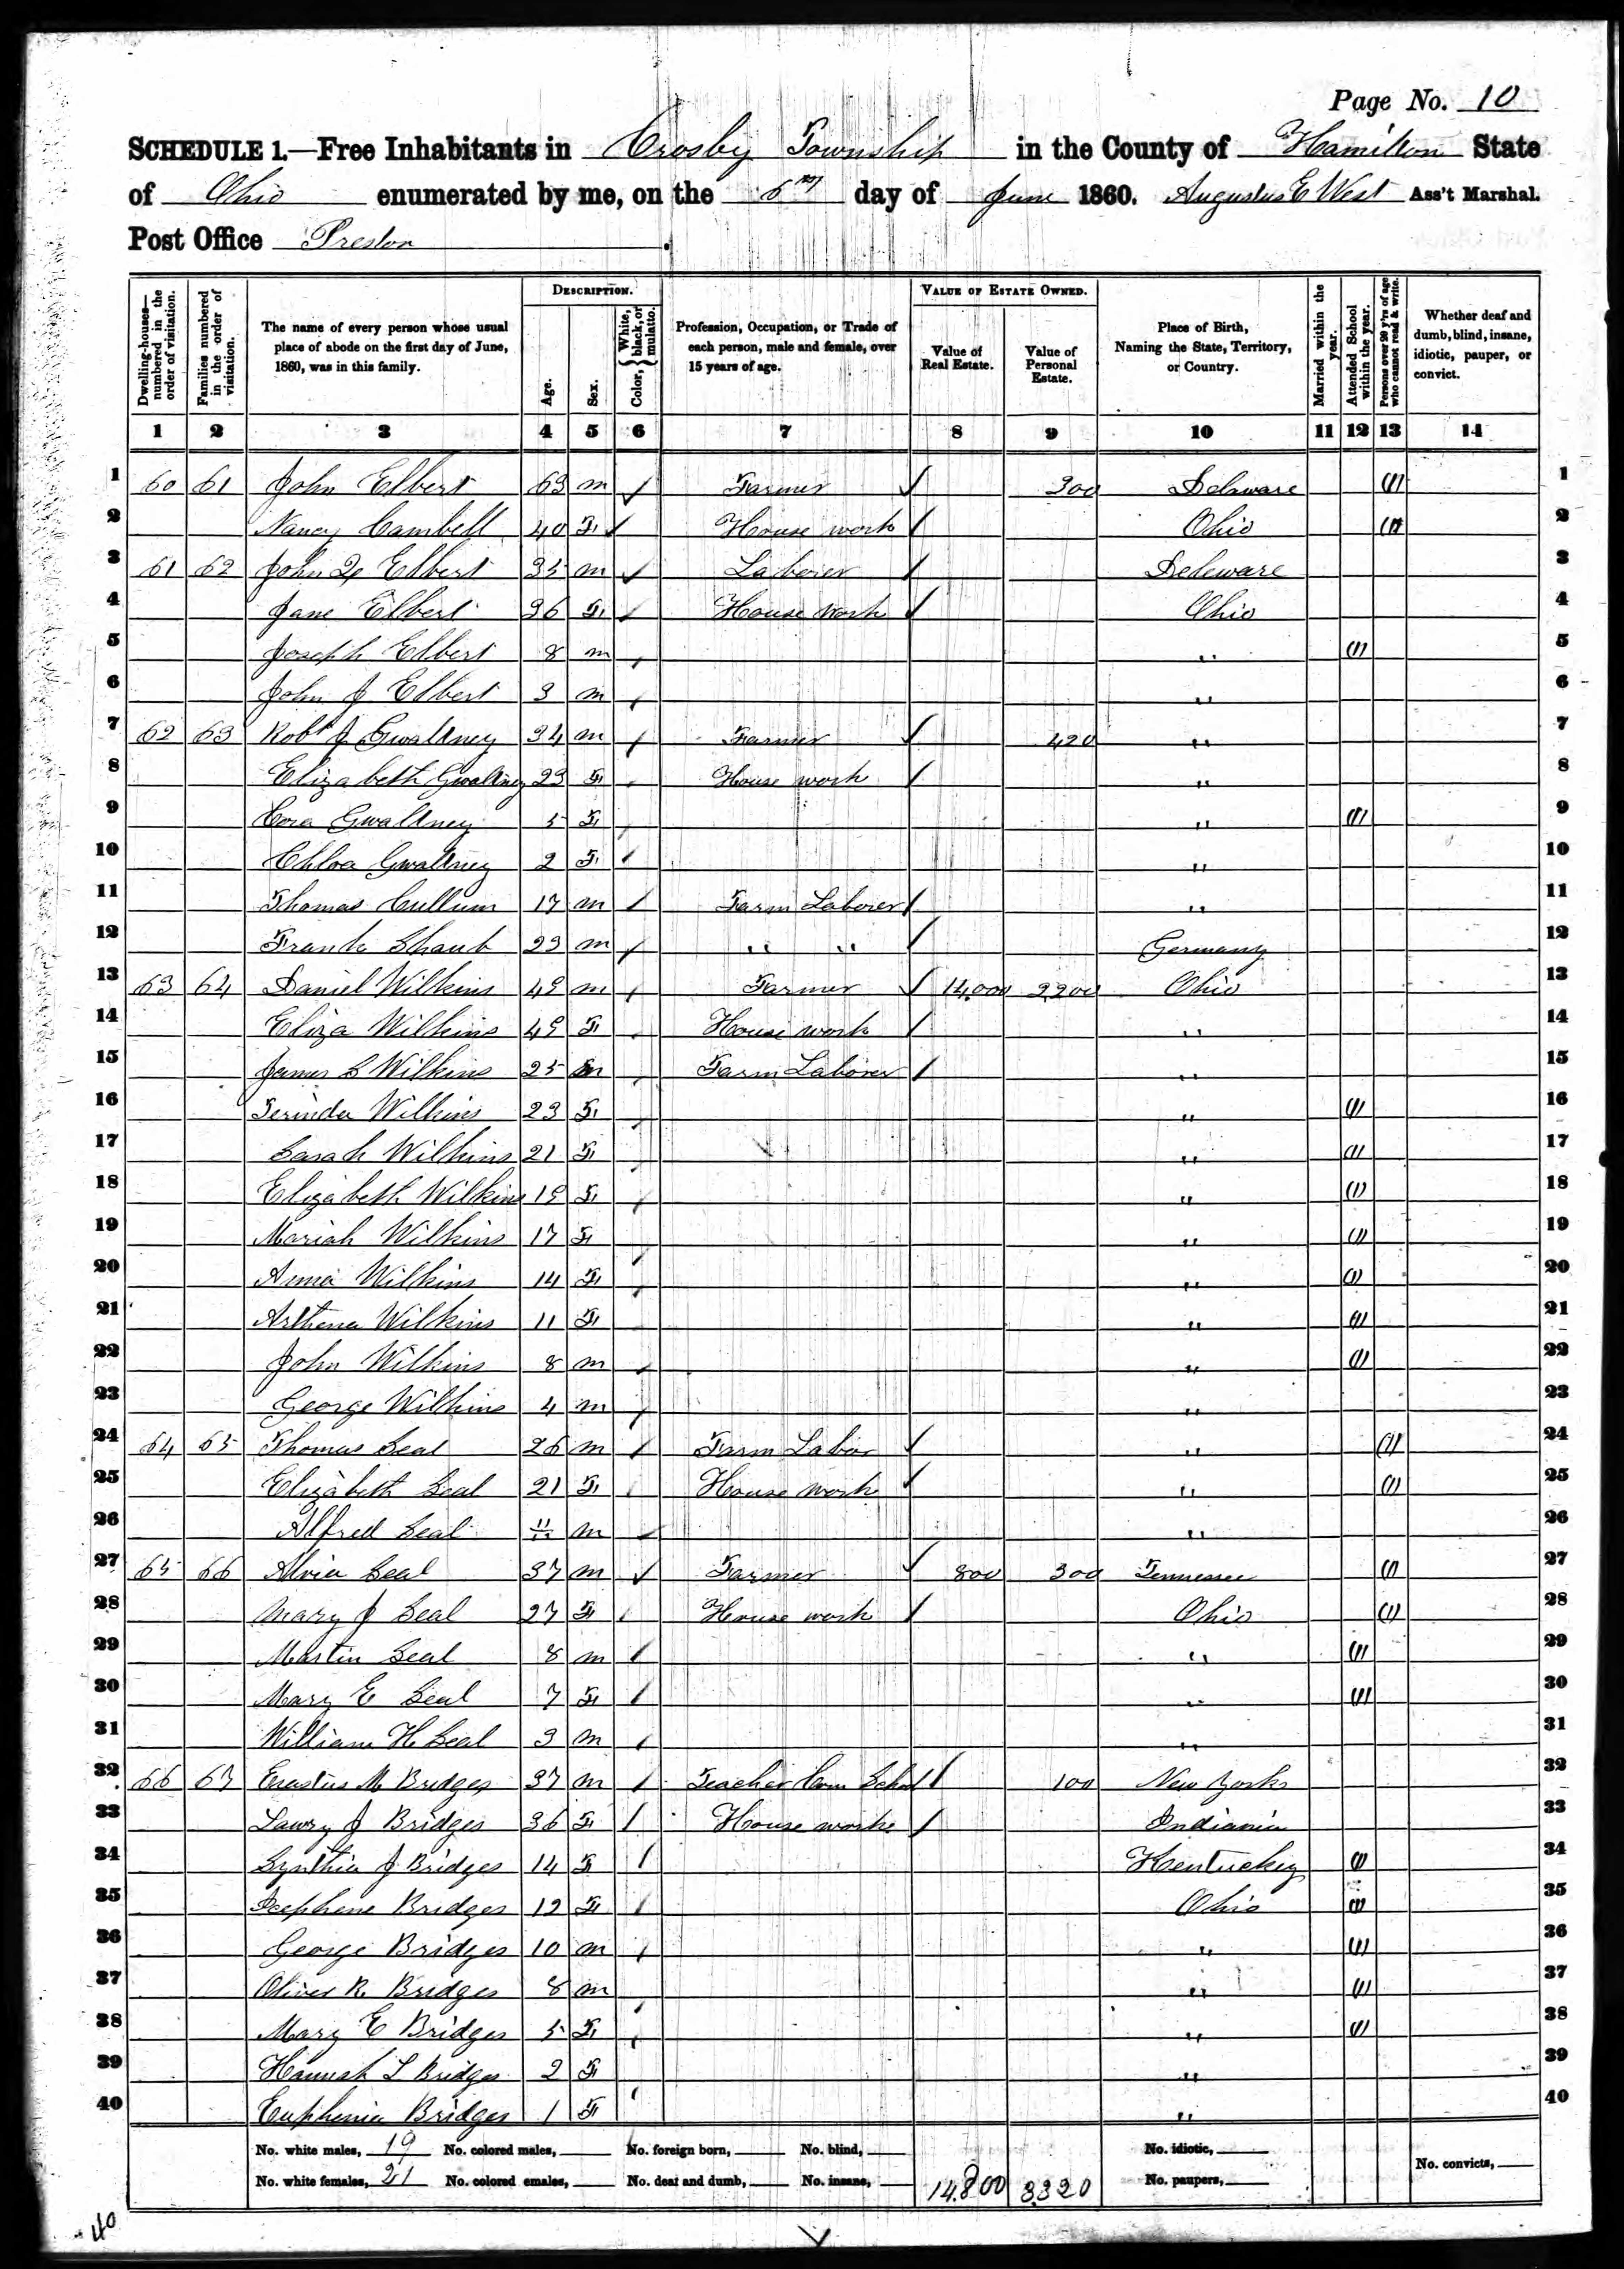 Page No. 10
SCHEDULE 1.—Free Inhabitants in Crosby Township in the County of Hamilton State
of Ohio enumerated by me, on the day of June 1860. Augustus E West Ass't Marshal.
Post Office Preston.
Dwelling-houses—numbered in the order of visitation.
Families numbered in the order of visitation.
The name of every person whose usual place of abode on the first day of June, 1860, was in this family.
DESCRIPTION.
Age.
Sex.
Color, { White, black, or mulatto.
Profession, Occupation, or Trade of each person, male and female, over 15 years of age.
VALUE OF ESTATE OWNED.
Value of Real Estate.
Value of Personal Estate.
Place of Birth, Naming the State, Territory, or Country.
Married within the year.
Attended School within the year.
Persons over 20 y'rs of age who cannot read & write.
Whether deaf and dumb, blind, insane, idiotic, pauper, or convict.
1 2 3 4 5 6 7 8 9 10 11 12 13 14
1 60 61 John Elbert 63 m ✓ Farmer ✓ 300 Delaware (1) 1
2 Nancy Cambell 40 F ✓ House work / Ohio (1) 2
3 61 62 John Elbert 35 m ✓ Laborer / Deleware 3
4 Jane Elbert 36 F / House Work ✓ Ohio 4
5 Joseph Elbert 8 m / " (1) 5
6 John J Elbert 3 m / " 6
7 62 63 Robt J Gwaltney 34 m / Farmer ✓ 420 " 7
8 Elizabeth Gwaltney 23 F / House work / " 8
9 Cora Gwaltney 5 F / " (1) 9
10 Chloa Gwaltney 2 F / " 10
11 Thomas Cullum 17 m / Farm Laborer / " 11
12 Frank Shaub 23 m / " " / Germany 12
13 63 64 Daniel Wilkins 49 m / Farmer ✓ 14,000 2200 Ohio 13
14 Eliza Wilkins 49 F / House work / " 14
15 James S Wilkins 25 m / Farm Laborer / " 15
16 Wilkins 23 F / " (1) 16
17 Sarah Wilkins 21 F / " (1) 17
18 Elizabeth Wilkins 19 F / " (1) 18
19 Mariah Wilkins 17 F " (1) 19
20 Anna Wilkins 14 F / " (1) 20
21 Arthena Wilkins 11 F " (1) 21
22 John Wilkins 8 m / " (1) 22
23 George Wilkins 4 m / " 23
24 64 65 Thomas Seal 26 m / Farm Labor ✓ " (1) 24
25 Elizabeth Seal 21 F / House Work ✓ " (1) 25
26 Alfred Seal 11/12 m / " 26
27 65 66 Alvia Seal 37 m ✓ Farmer ✓ 800 300 Tennessee (1) 27
28 Mary J Seal 27 F / House work / Ohio (1) 28
29 Martin Seal 8 m / " (1) 29
30 Mary E Seal 7 F / " (1) 30
31 William H Seal 3 m / " 31
32 66 67 Erastus M Bridges 37 m / Teacher Com School / 100 New York 32
33 J Bridges 36 F / House work / Indiania 33
34 Synthia J Bridges 14 F / Kentucky (1) 34
35 Josephene Bridges 12 F / Ohio (1) 35
36 George Bridges 10 m / " (1) 36
37 Oliver R. Bridges 8 m " (1) 37
38 Mary E Bridges 5 F / " (1) 38
39 Hannah L Bridges 2 F " 39
40 Euphenia Bridges 1 F / " 40
No. white males, 19 No. colored males, No. foreign born, No. blind, No. idiotic,
No. white females, 21 No. colored emales, No. deaf and dumb, No. insane, 14,800 3320 No. paupers, No. convicts,
40